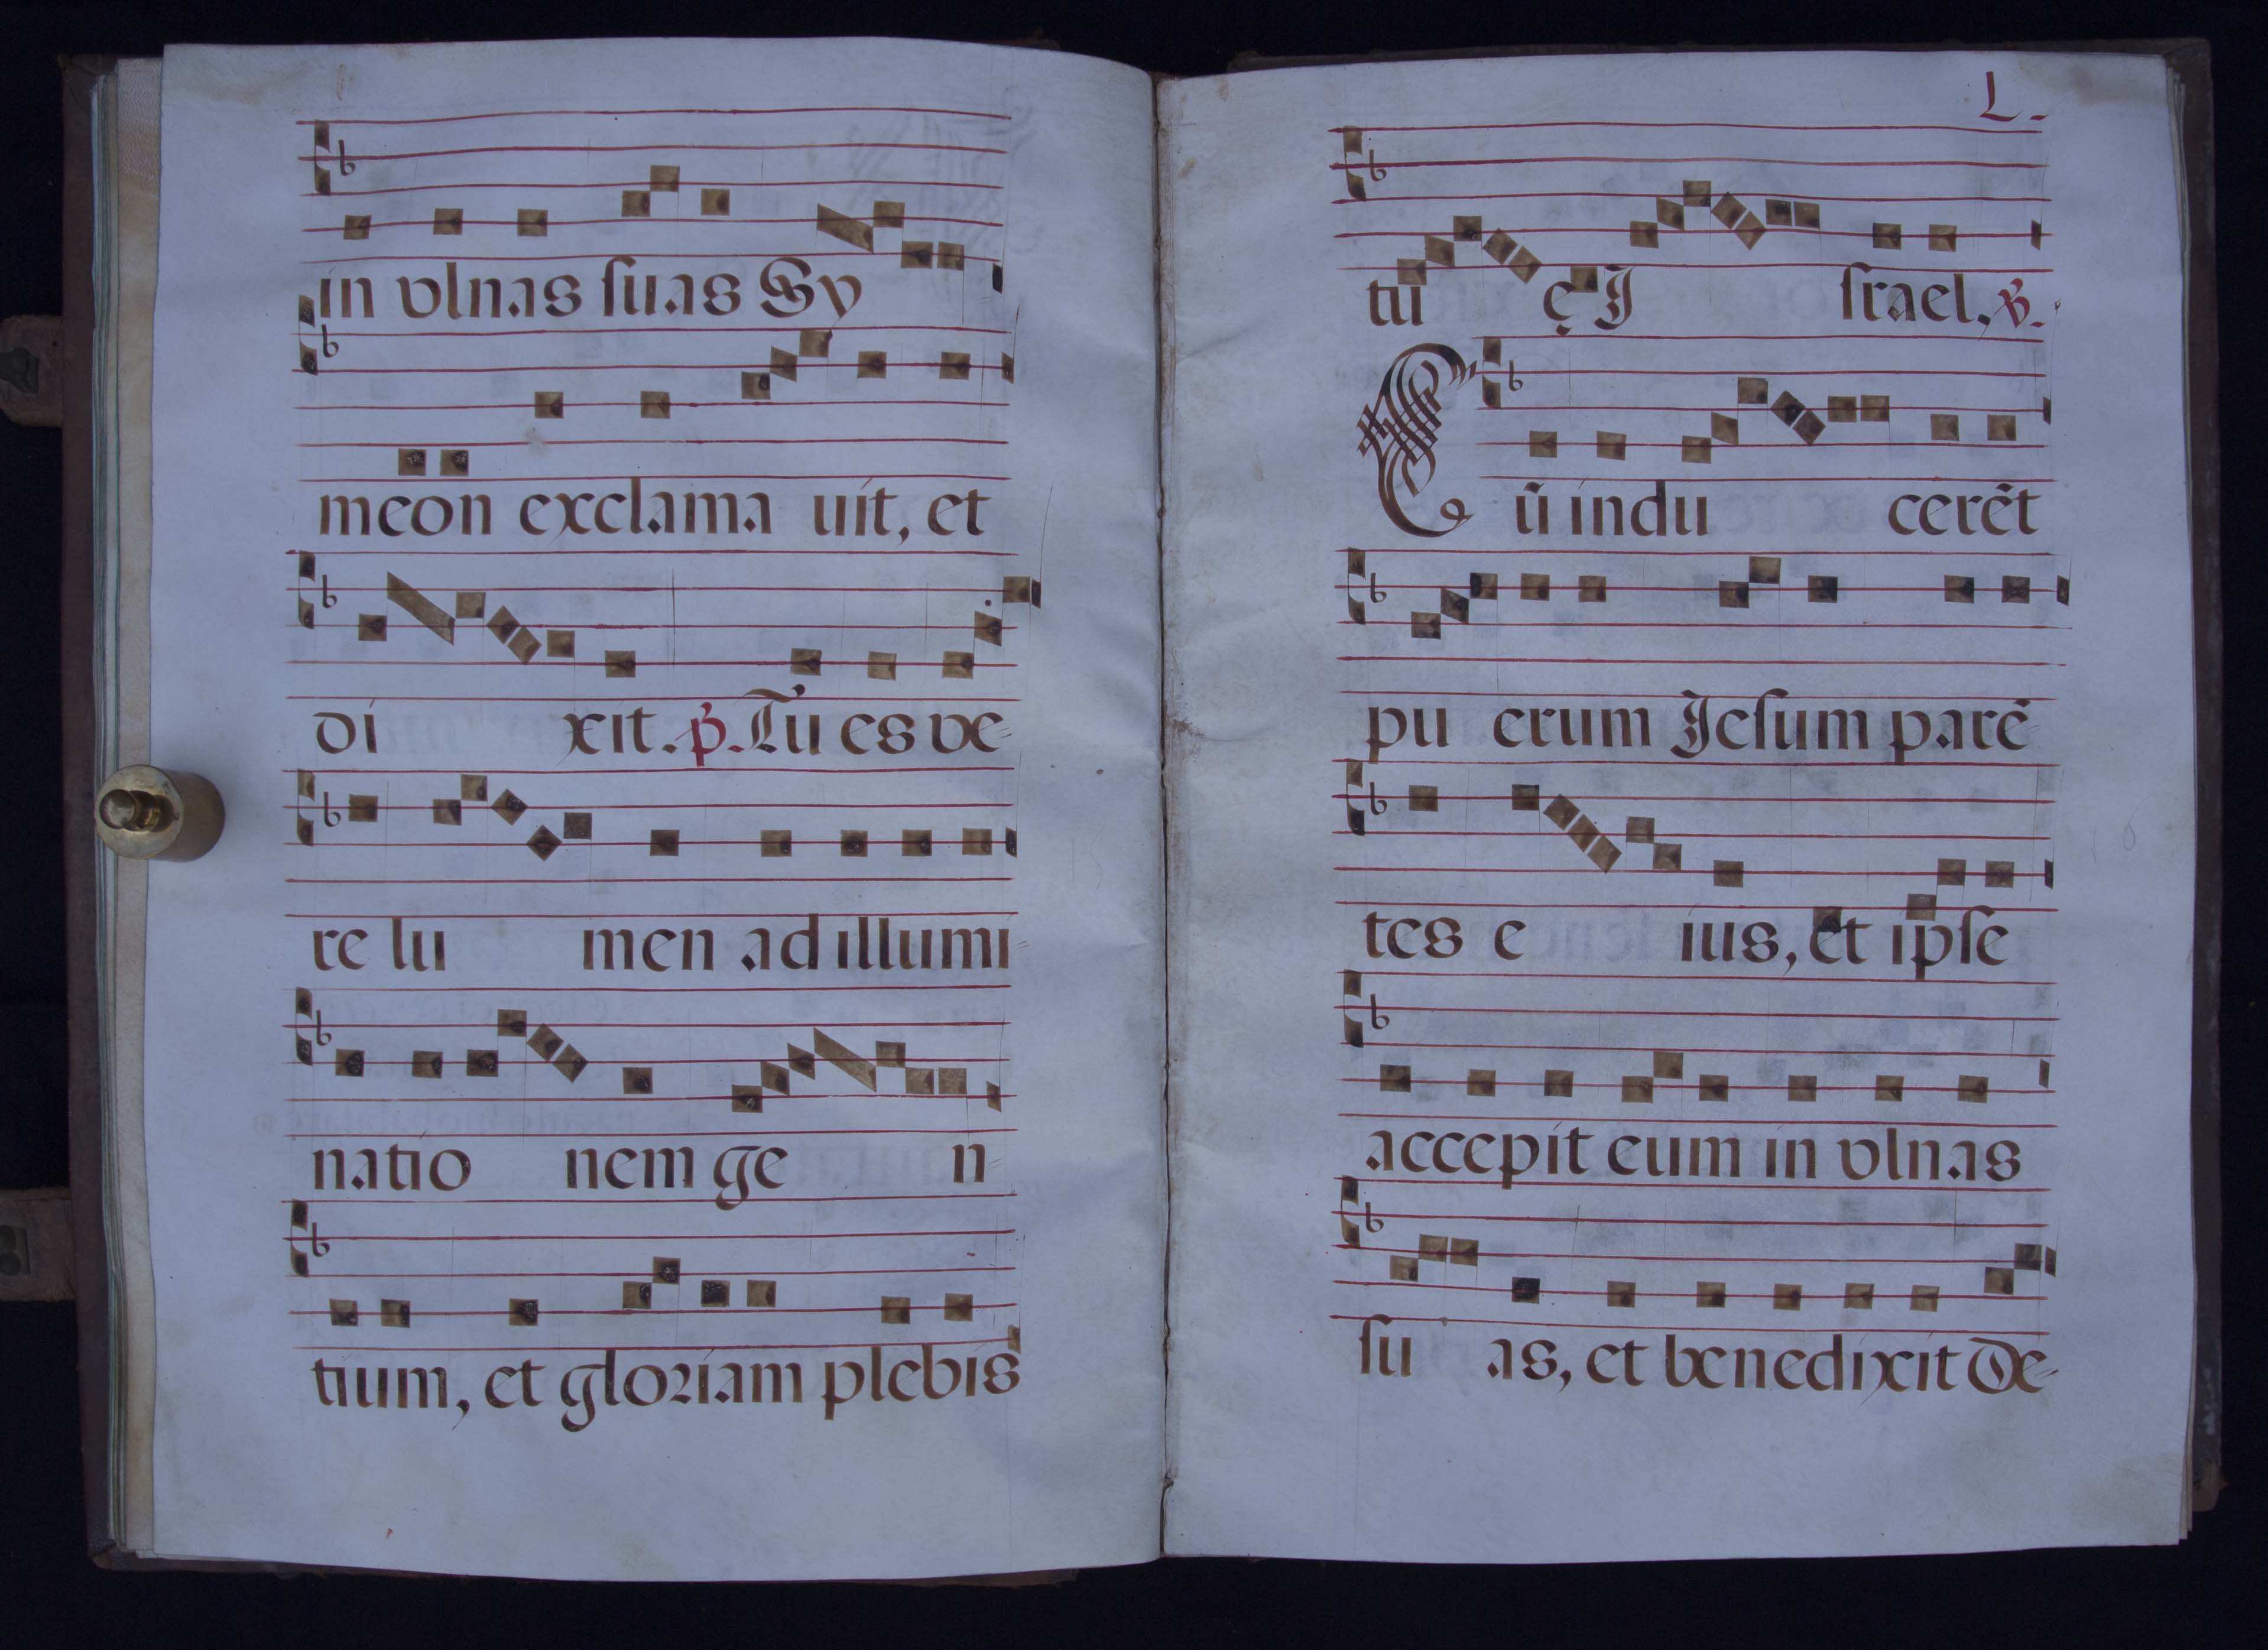 in vlnas ſuas Sy
meon exclama uit, et
di xit. p. Tu es ve-
re lu men ad illumi-
natio nem ge n
tium, et gloriam plebis
L.
tu ę Iſrael, v.
Cū indu cerēt
pu erum Jeſum parē-
tes e ius, et ipſe
accepit eum in vlnas
ſu as, et benedixit De-